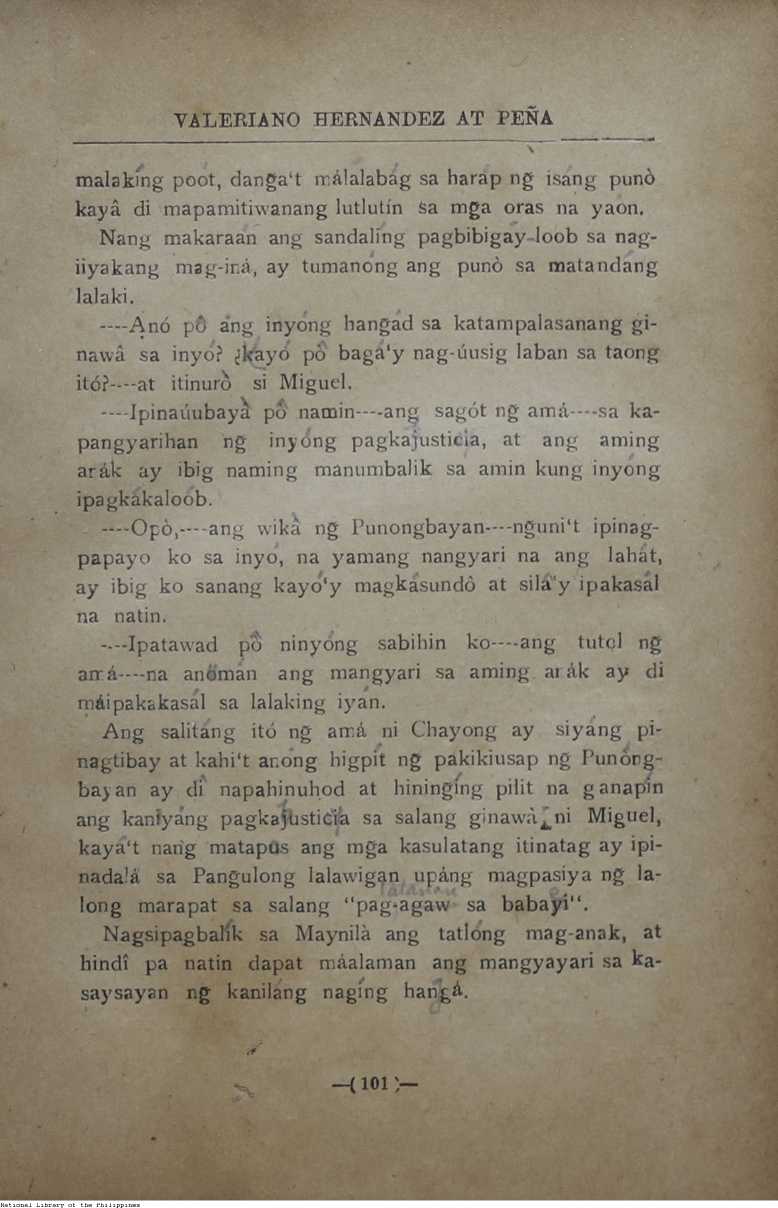 VALERIANO HERNANDEZ AT PEÑA
malakíng poót, dang̃a't málalabág sa haráp ng̃ isáng punò
kayâ di mapamitiwanang lutlutín sa mg̃a oras na yaón.
Nang makaraán ang sandalíng pagbibigáy-loob sa nag-
iiyakang mag-iná, ay tumanóng ang punò sa matandáng
lalaki.
----Anó pô ang inyóng hang̃ád sa katampalasanang gi-
nawâ sa inyó? ¿kayó pô bagá'y nag-úusig laban sa taong
itó?----at itinurò si Miguel.
----Ipinaúubayà pô namin----ang sagót ng̃ amá----sa ka-
pangyarihan ng̃ inyóng pagkajusticia, at ang aming
anák ay ibig naming manumbalik sa amin kung inyóng
ipagkákaloób.
----Opò,----ang wikà ng̃ Punongbayan----ng̃uni't ipinag-
papayo ko sa inyó, na yamang nangyari na ang lahát,
ay ibig ko sanang kayó'y magkásundò at silá'y ipakasál
na natin.
----Ipatawad pô ninyóng sabihin ko----ang tutol ng̃
amá----na anomán ang mangyari sa aming anák ay di
máipakakasál sa lalaking iyán.
Ang salitáng itó ng̃ amá ni Chayong ay siyáng pi-
nagtibay at kahi't anóng higpít ng̃ pakikiusap ng̃ Punóng-
bayan ay dì napahinuhod at hiningíng pilit na ganapín
ang kaniyáng pagkajusticia sa salang ginawà ni Miguel,
kayá't nang matapus ang mg̃a kasulatang itinatag ay ipi-
nadalá sa Pang̃ulong lalawigan upáng magpasiya ng̃ la-
long marapat sa salang "pag-agaw sa babayi".
Nagsipagbalík sa Maynilà ang tatlóng mag-anak, at
hindî pa natin dapat máalaman ang mangyayari sa ka-
saysayan ng̃ kaniláng nagíng hanggá.
—( 101 )—
National Library of the Philippines